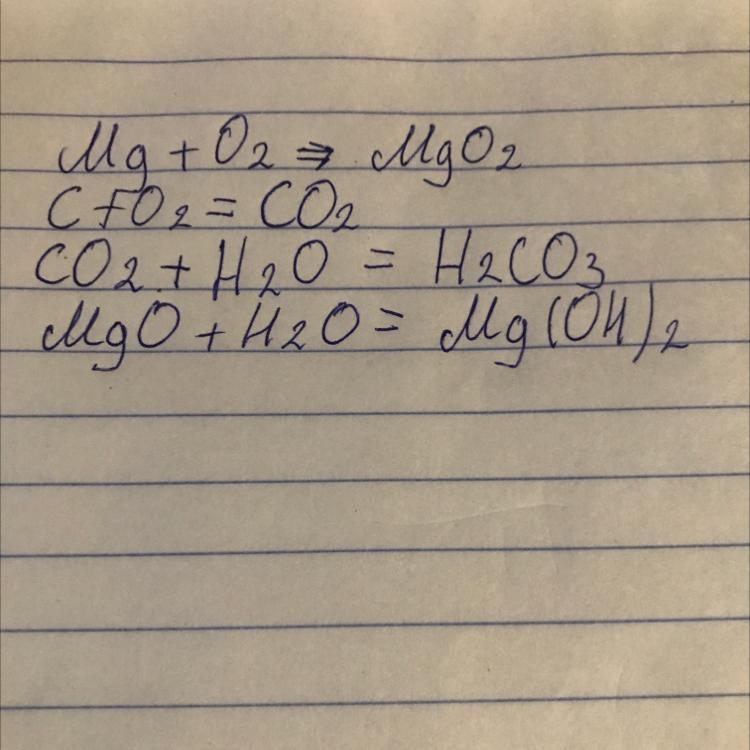 Mg + O2 ⇒ MgO2
C + O2 = CO2
CO2 + H2O = H2CO3
MgO + H2O = Mg(OH)2